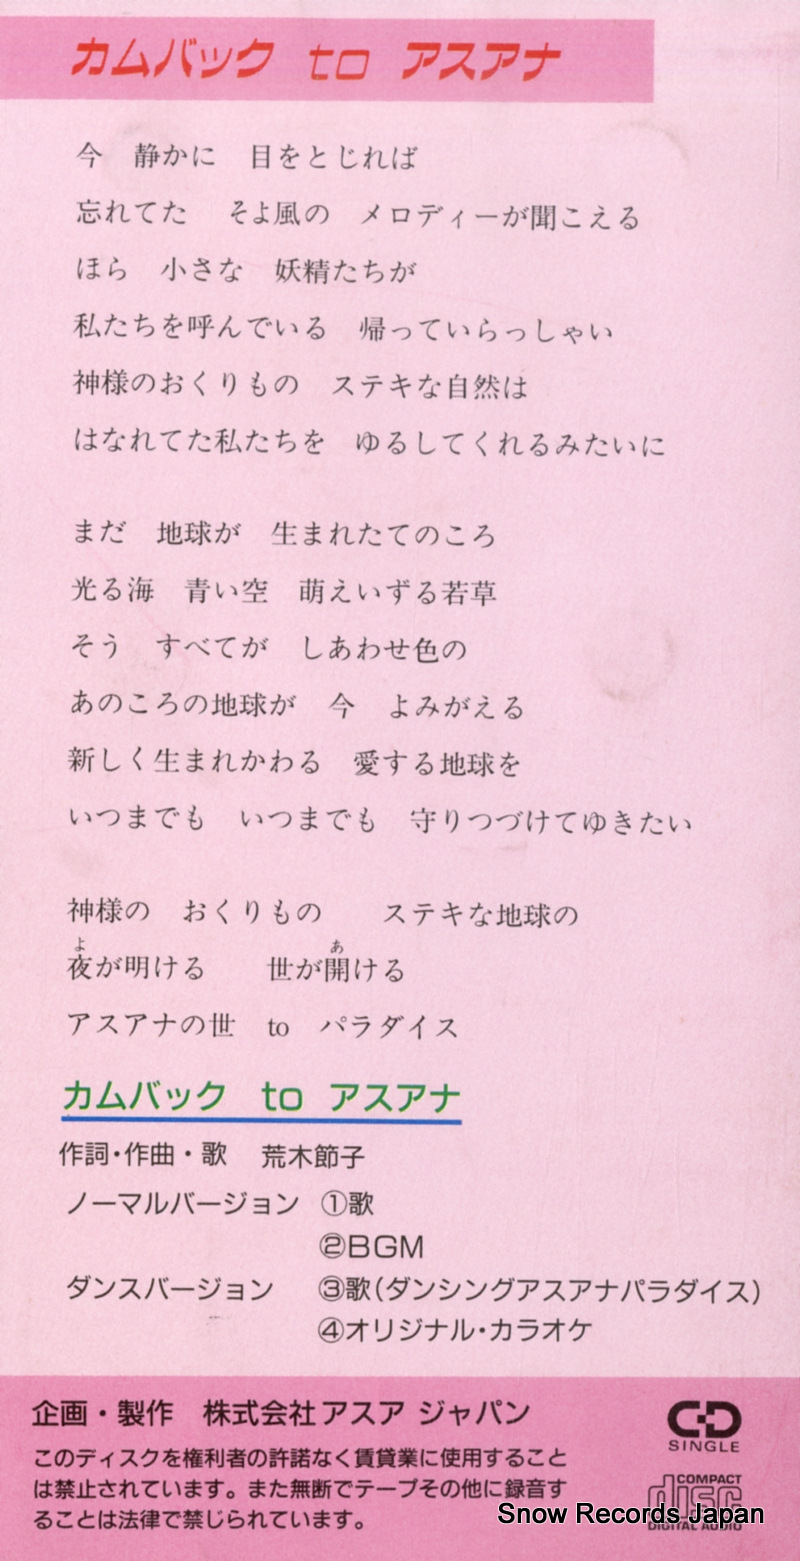 カムバック to アスアナ
今　静かに　目をとじれば
忘れてた　そよ風の　メロディーが聞こえる
ほら　小さな　妖精たちが
私たちを呼んでいる　帰っていらっしゃい
神様のおくりもの　ステキな自然は
はなれてた私たちを　ゆるしてくれるみたいに
まだ　地球が　生まれたてのころ
光る海　青い空　萌えいずる若草
そう　すべてが　しあわせ色の
あのころの地球が　今　よみがえる
新しく生まれかわる　愛する地球を
いつまでも　いつまでも　守りつづけてゆきたい
神様の　おくりもの　　ステキな地球の
よ　あ
夜が明ける　　世が開ける
アスアナの世　to　パラダイス
カムバック　to　アスアナ
作詞・作曲・歌　荒木節子
ノーマルバージョン　①歌
②BGM
ダンスバージョン　③歌（ダンシングアスアナパラダイス）
④オリジナル・カラオケ
企画・製作　株式会社アスア ジャパン
このディスクを権利者の許諾なく賃貸業に使用すること
は禁止されています。また無断でテープその他に録音す
ることは法律で禁じられています。
CD
SINGLE
COMPACT
disc
DIGITAL AUDIO
Snow Records Japan